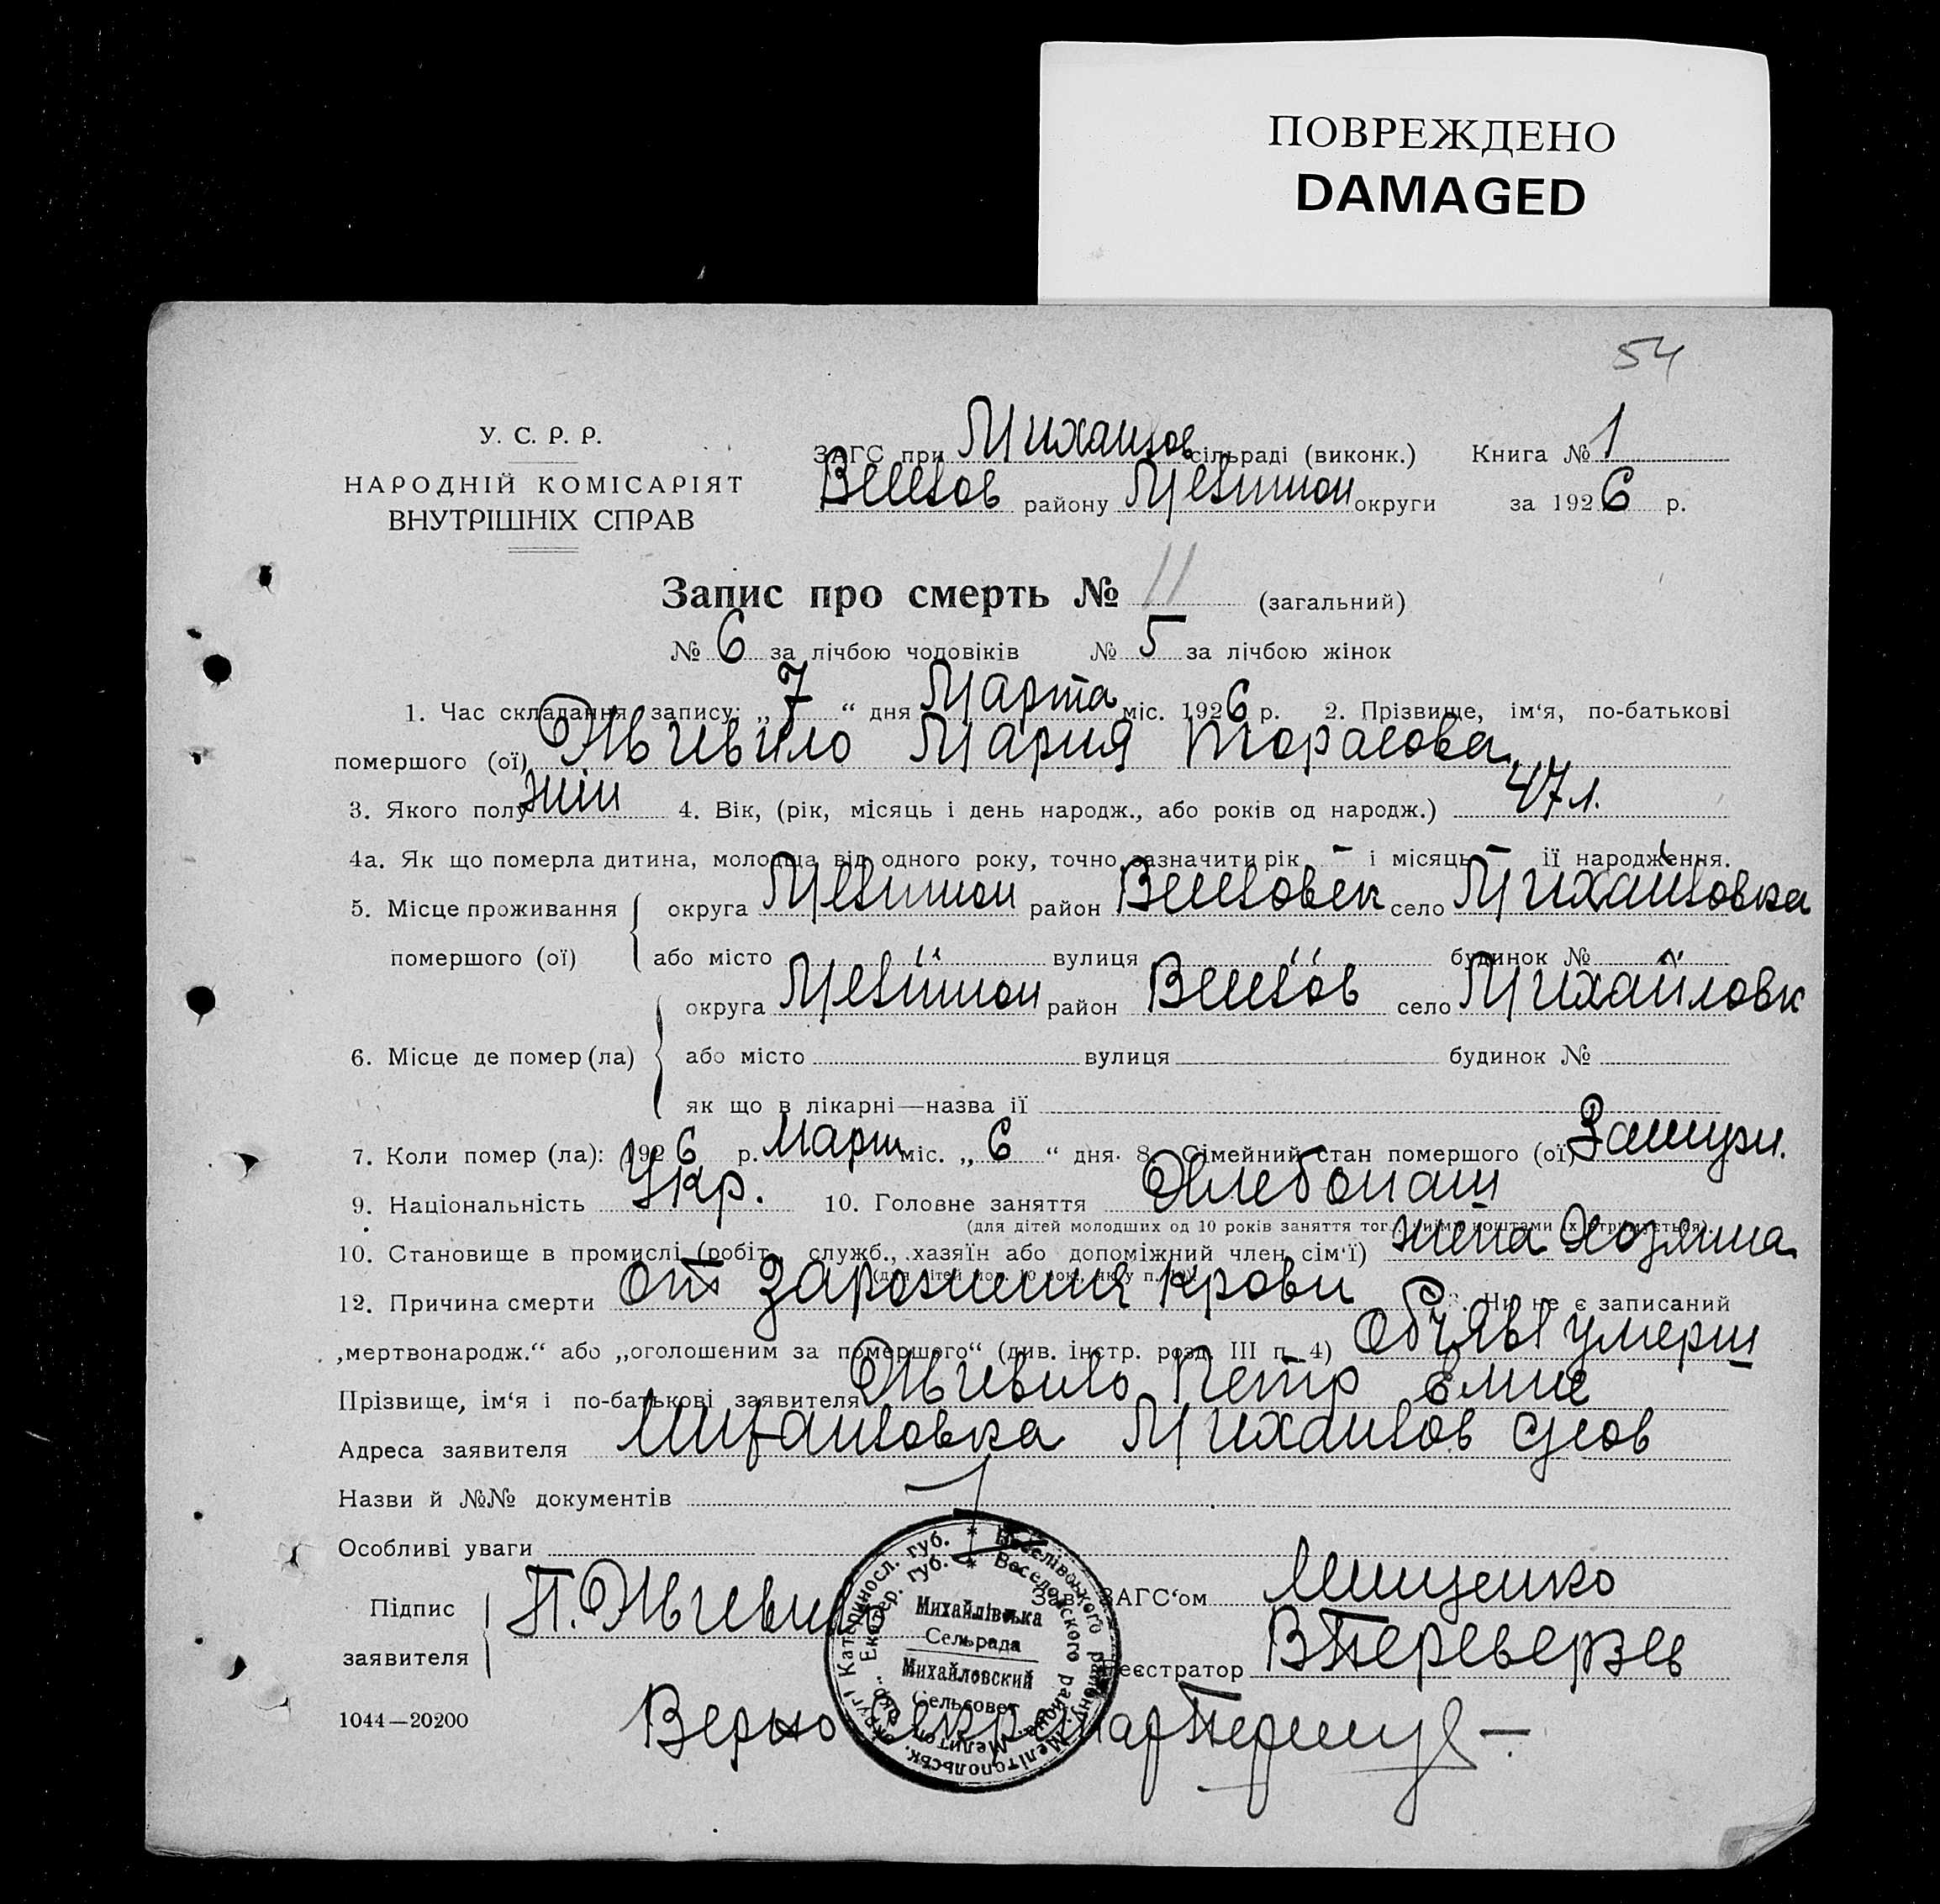 ПОВРЕЖДЕНО
DAMAGED
54
У. С. Р. Р.
НАРОДНІЙ КОМІСАРІЯТ
ВНУТРІШНІХ СПРАВ
ЗАГС при Михайлов сільраді (виконк.) Книга № 1
Веселов району Мелитоп округи за 1926 р.
Запис про смерть № 11 (загальний)
№ 6 за лічбою чоловіків № 5 за лічбою жінок
1. Час складання запису: „ 7 “ дня Марта міс. 1926 р. 2. Прізвище, ім‘я, по-батькові
помершого (ої) Мария Тарасова
3. Якого полу жін 4. Вік, (рік, місяць і день народж., або років од народж.) 47 л.
4а. Як що померла дитина, молодща від одного року, точно зазначити рік – і місяць – її народження.
5. Місце проживання округа Мелитоп район Веселовск село Михайловка
помершого (ої) або місто " вулиця " будинок № "
округа Мелитоп район Веселов село Михайловк
6. Місце де помер (ла) або місто вулиця будинок №
як що в лікарні—назва її
7. Коли помер (ла): 1926 р. Март міс. „ 6 “ дня. 8. Сімейний стан помершого (ої) Замужн.
9. Національність Укр. 10. Головне заняття Хлебопаш
(для дітей молодших од 10 років заняття того, чиїми коштами їх утримується).
10. Становище в промислі (робіт., служб., хазяїн або допоміжний член сім‘ї) жена Хозяина
(для дітей мол. 10 рок., як у п. 10).
12. Причина смерти от Заражения крови 13. Чи не є записаний
„мертвонародж.“ або „оголошеним за помершого“ (див. інстр. розд. III п. 4) Объявл умерш
Прізвище, ім‘я і по-батькові заявителя Петр
Адреса заявителя Михайловка Михайлов
Назви й №№ документів
Особливі уваги
Підпис
заявителя П.
Зав. ЗАГС‘ом Мищенко
Реєстратор В Переверзев
Катериносл. губ. * Веселівського району, Мелітопольськ. округ
Екатер. губ. * Веселовского района, Мелитоп. окр.
Михайлівська
Сельрада
Михайловский
Сельсовет
1044—20200
Верно Секретар